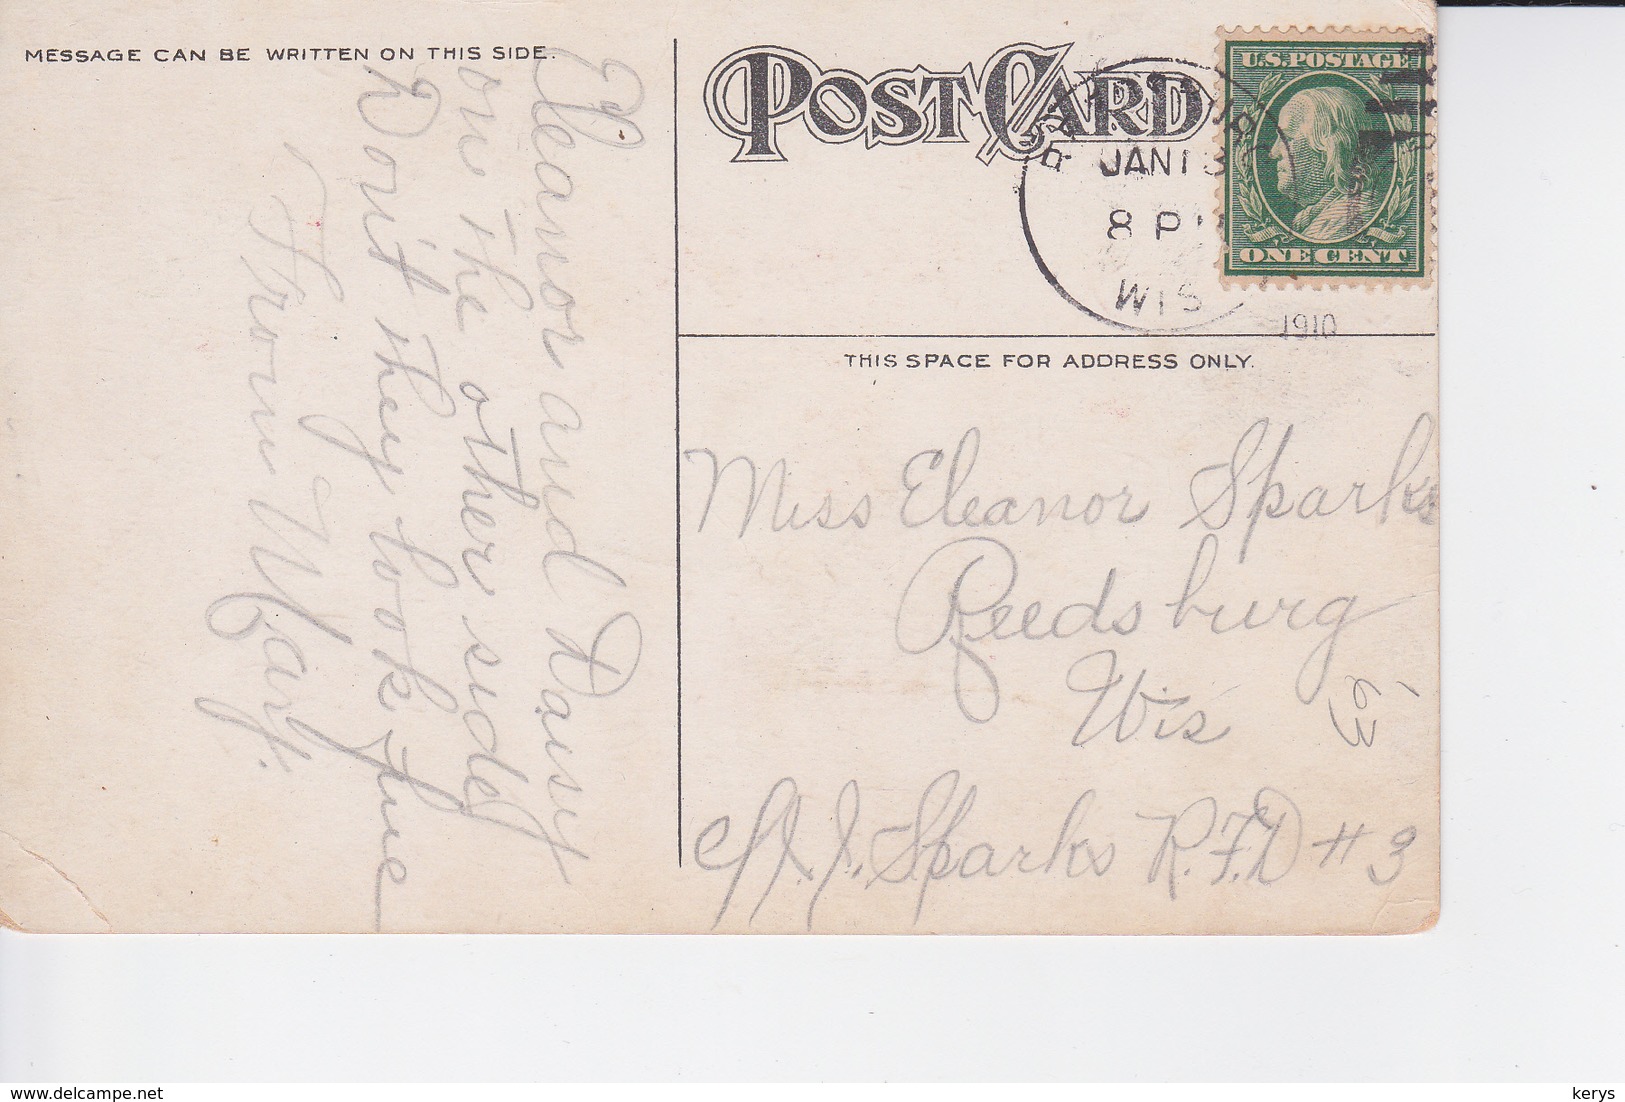 MESSAGE CAN BE WRITTEN ON THIS SIDE.
POST CARD
JAN 13
8 P
WIS
1910
U.S. POSTAGE
ONE CENT
THIS SPACE FOR ADDRESS ONLY.
Eleanor and Daisy
on the other side
Don't they look fine
From Mary.
Miss Eleanor Sparks
Reedsburg
Wis
63
c/o J. Sparks R.F.D # 3
www.delcampe.net
kerys